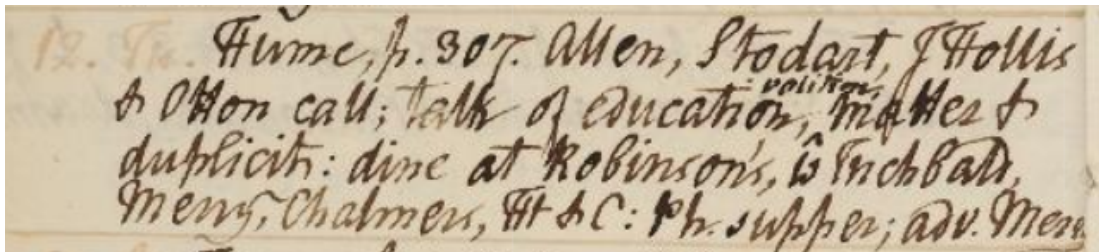 12. Tu. Hume, p. 307. Allen, Stodart, J Hollis
& Otton call; talk of education, volition, matter &
duplicity: dine at Robinson's, ŵ Inchbald,
Merry, Chalmers, Ht & C: Ph. supper; adv. Merry